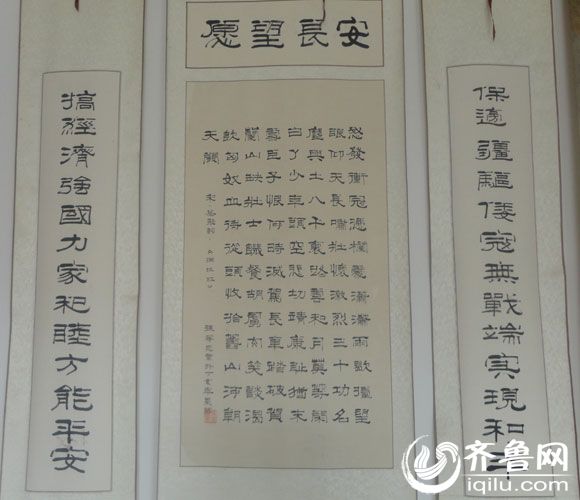 愿望長安
保邊疆驅倭寇無戰端实現和平
怒發衝冠憑欄處瀟瀟雨歇擡望
眼仰天長嘯壯懷激烈三十功名
塵與土八千裏路雲和月莫等閑
白了少年頭空悲切靖康耻猶未
雪臣子恨何時滅駕長車踏破賀
蘭山缺壯士饑餐胡虜肉笑談渴
飲匈奴血待從頭收拾舊山河朝
天闕 宋 岳飛詞 滿江紅
搞經濟強國力家和睦方能平安
齐鲁网
iqilu.com